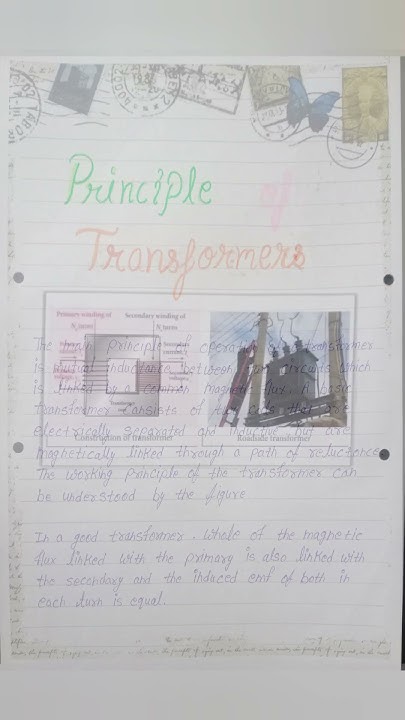 Principle of
Transformers
Primary winding of
Secondary winding of
N_turns
N_turns
The main principle of operation of a transformer
is mutual inductance between two circuits which
is linked by a common magnetic flux. A basic
transformer consists of two coils that are
electrically separated and inductive, but are
Construction of transformer
Roadside transformer
magnetically linked through a path of reluctance
The working principle of the transformer can
be understood by the figure
In a good transformer, whole of the magnetic
flux linked with the primary is also linked with
the secondary and the induced emf of both in
each turn is equal.